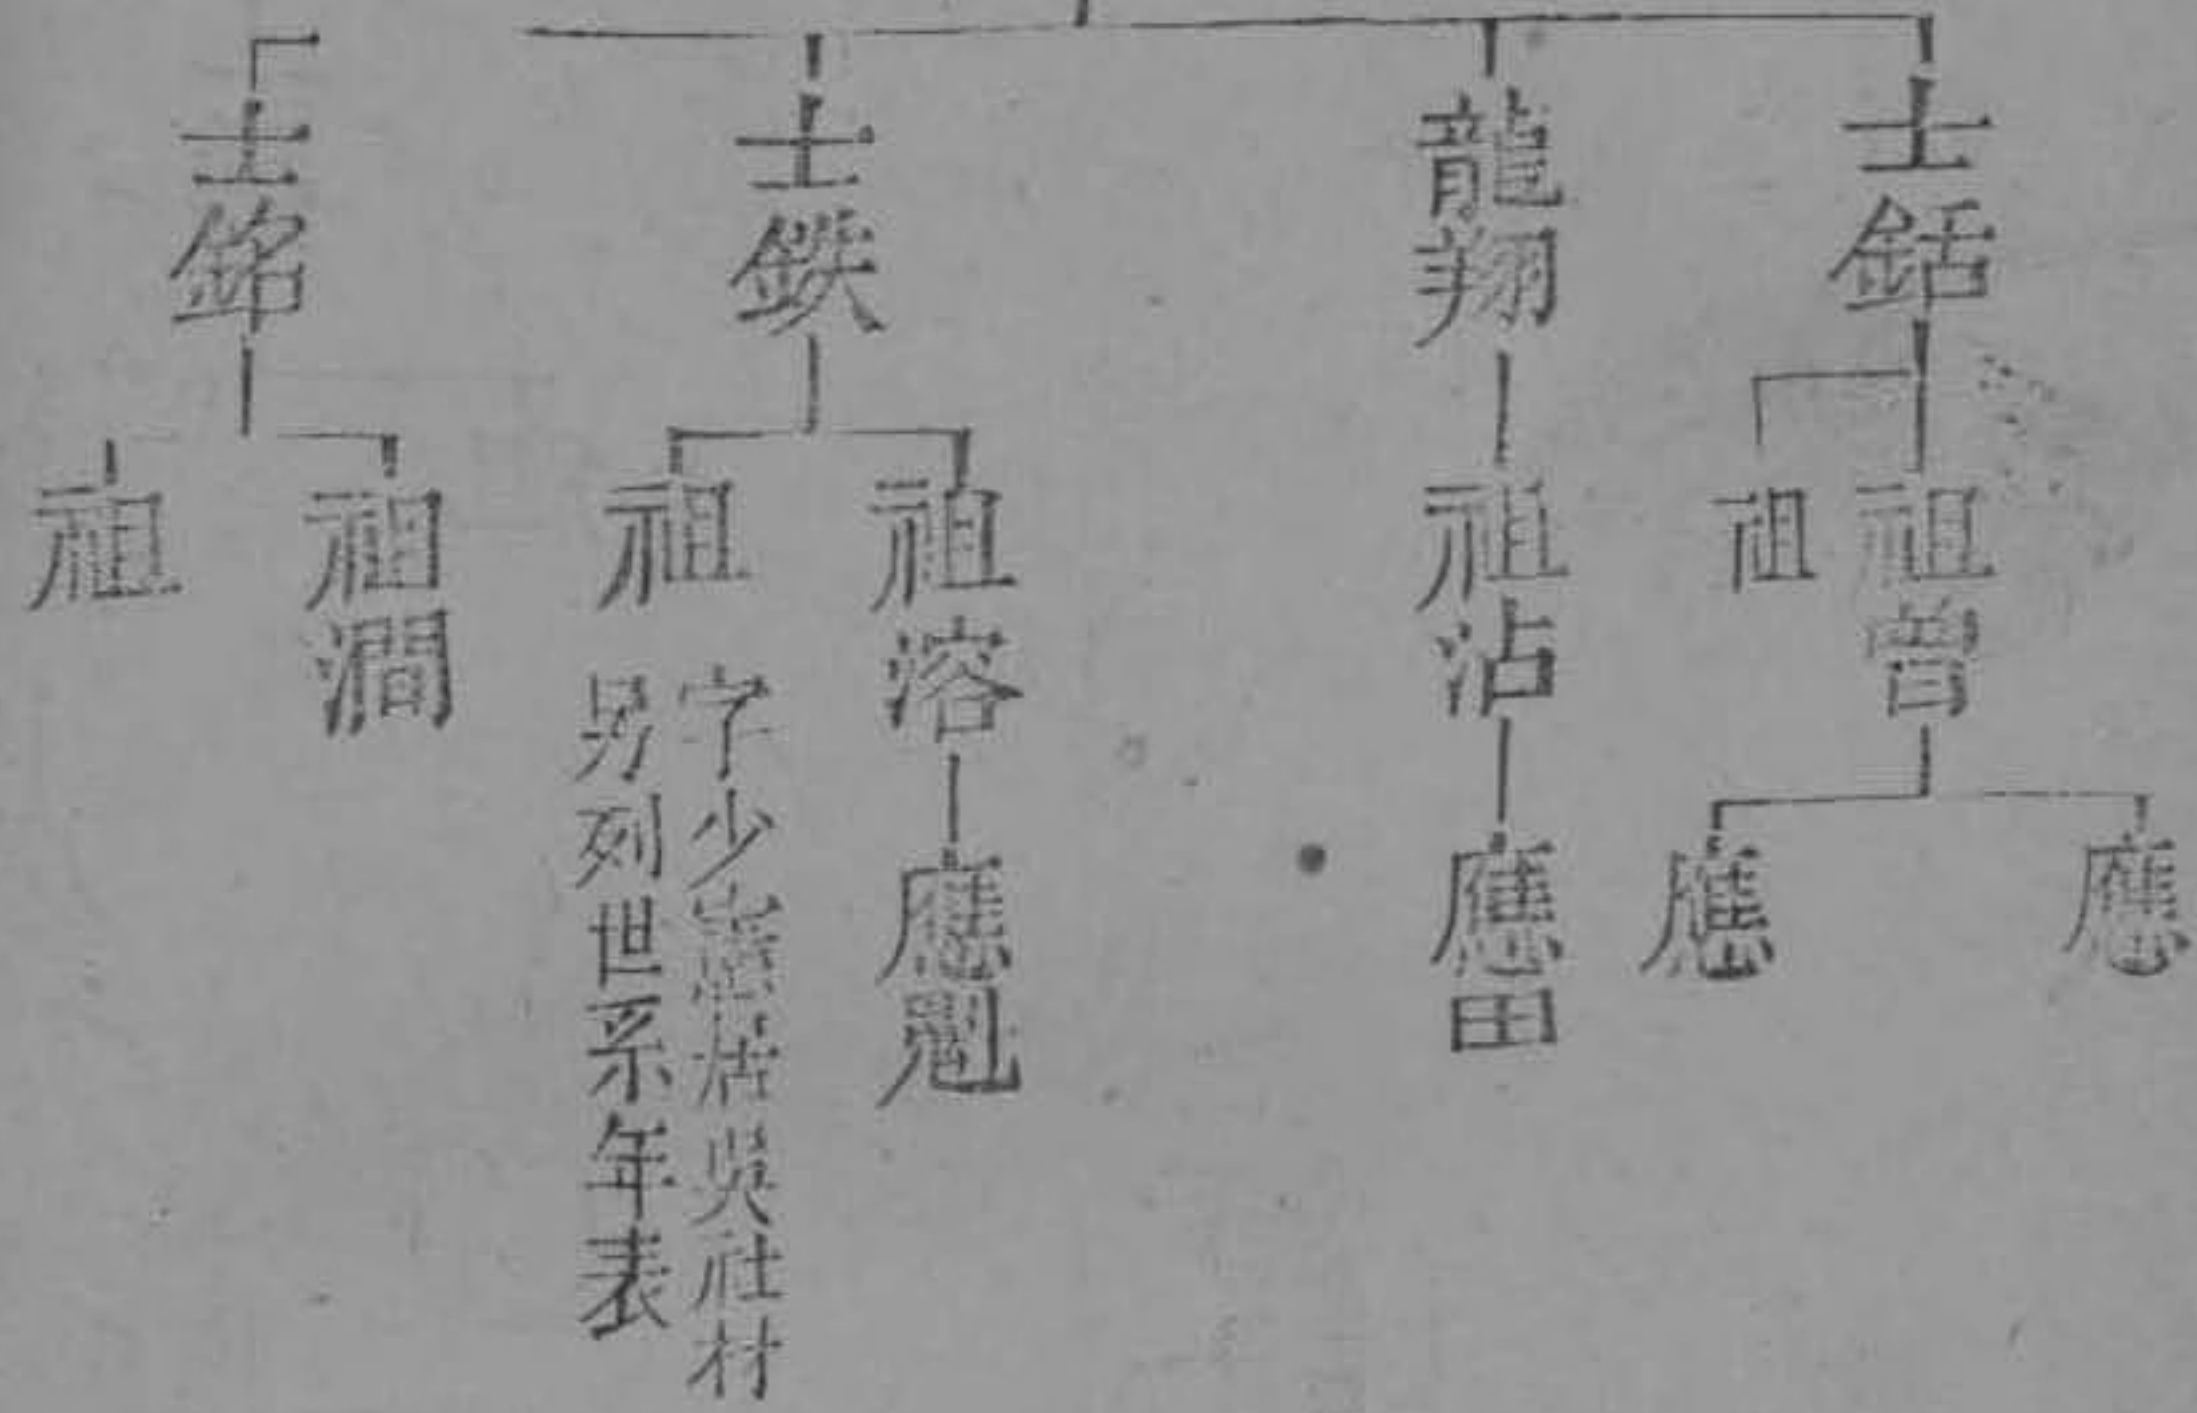 士銛
祖
應
應
祖
龍翔
祖沾
應田
士鍨
祖溶
應魁
祖
字少 居吳社村
另列世系年表
士銘
祖澗
祖